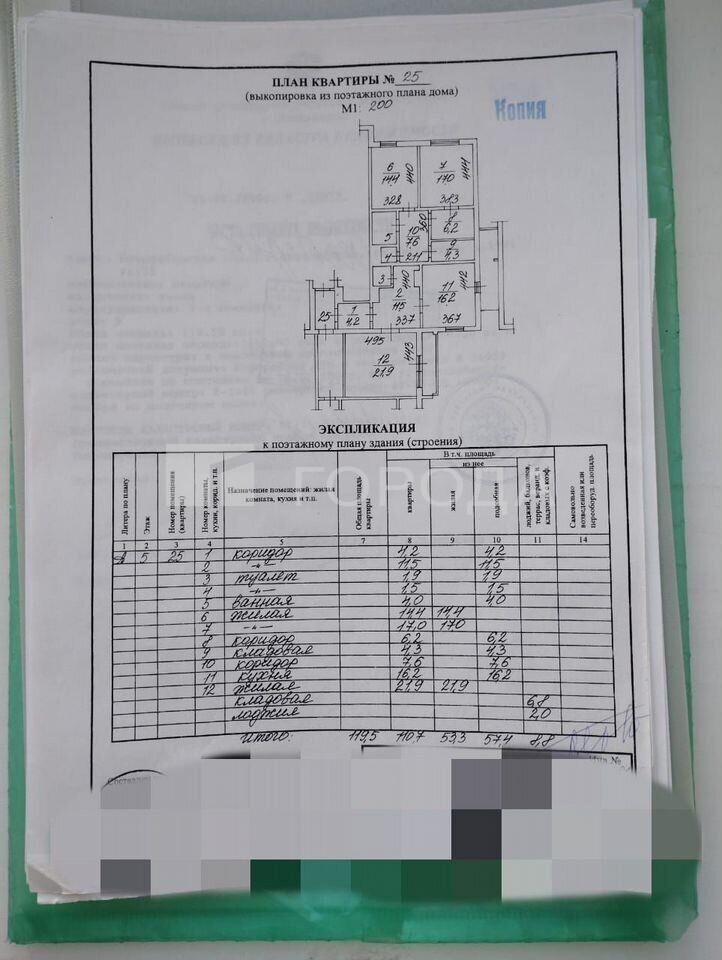 ПЛАН КВАРТИРЫ № 25
(выкопировка из поэтажного плана дома)
М1: 200
Копия
6 7
14,4 440 17,0 444
328 383
5 10 7,6 360 8 6,2
4 211 9 4,3
3 440
2 11,5 11 16,2 442
25 1 4,2 337 367
495
12 21,9 443
ЭКСПЛИКАЦИЯ
к поэтажному плану здания (строения)
ГОРОД
Литера по плану
Этаж
Номер помещения (квартиры)
Номер комнаты, кухни, корид. и т.п.
Назначение помещений: жилая комната, кухня и т.п.
Общая площадь квартиры
В т.ч. площадь
из нее
квартиры
жилая
подсобная
лоджий, балконов, террас, веранд. и кладовых с коэф.
Самовольно возведенная или переоборуд. площадь
1 2 3 4 5 7 8 9 10 11 14
А 5 25 1 коридор 4,2 4,2
2 -"- 11,5 11,5
3 туалет 1,9 1,9
4 -"- 1,5 1,5
5 ванная 4,0 4,0
6 жилая 14,4 14,4
7 -"- 17,0 17,0
8 коридор 6,2 6,2
9 кладовая 4,3 4,3
10 коридор 7,6 7,6
11 кухня 16,2 16,2
12 жилая 21,9 21,9
кладовая 6,8
лоджия 2,0
Итого: 119,5 110,7 53,3 57,4 8,8
Инв.№